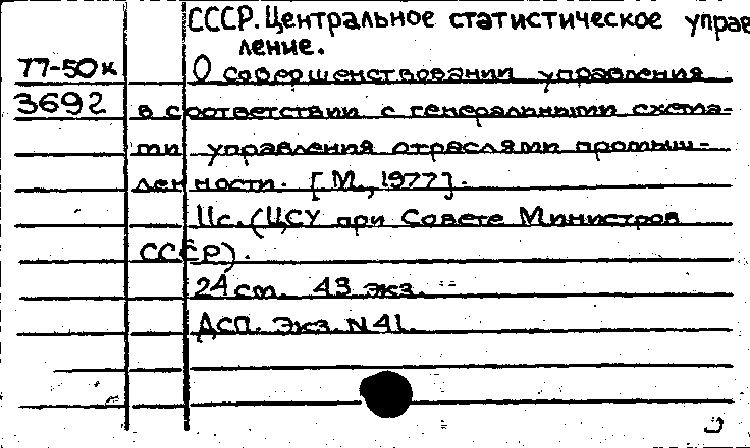 СССР. Центральное статистическое управ
ление.
77-50к О совершенствовании управления
3692 в соответствии с генеральными схема-
ми управления отраслями промыш-
ленности. [М., 1977].
11с. (ЦСУ при Совете Министров
СССР).
24 см. 43 экз.
ДСП. Экз. N 41.